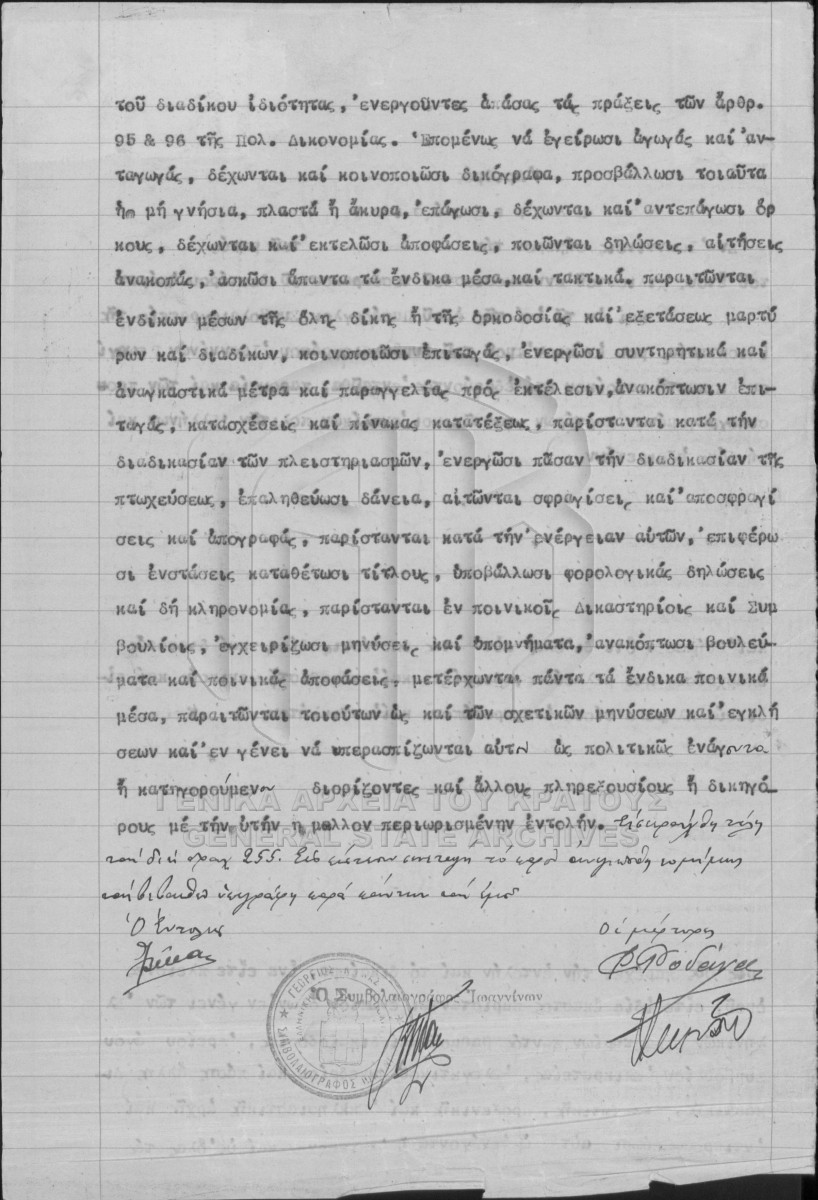 τοῦ διαδίκου ἰδιότητας, ἐνεργοῦντες ἁπάσας τάς πράξεις τῶν ἄρθρ.
95 & 96 τῆς Πολ. Δικονομίας. Ἐπομένως νά ἐγείρωσι ἀγωγάς καί ἀν-
ταγωγάς, δέχωνται καί κοινοποιῶσι δικόγραφα, προσβάλλωσι τοιαῦτα
ὡς μή γνήσια, πλαστά ἤ ἄκυρα, ἐπάγωσι, δέχωνται καί ἀντεπάγωσι ὅρ
κους, δέχωνται καί ἐκτελῶσι ἀποφάσεις, ποιῶνται δηλώσεις, αἰτήσεις
ἀνακοπάς, ἀσκῶσι ἅπαντα τά ἔνδικα μέσα, καί τακτικά. παραιτῶνται
ἐνδίκων μέσων τῆς ὅλης δίκης ἤ τῆς ὁρκοδοσίας καί ἐξετάσεως μαρτύ
ρων καί διαδίκων, κοινοποιῶσι ἐπιταγάς, ἐνεργῶσι συντηρητικά καί
ἀναγκαστικά μέτρα καί παραγγελίας πρός ἐκτέλεσιν, ἀνακόπτωσιν ἐπι-
ταγάς, κατασχέσεις καί πίνακας κατατάξεως, παρίστανται κατά τήν
διαδικασίαν τῶν πλειστηριασμῶν, ἐνεργῶσι πᾶσαν τήν διαδικασίαν τῆς
πτωχεύσεως, ἐπαληθεύωσι δάνεια, αἰτῶνται σφραγίσεις καί ἀποσφραγί
σεις καί ἀπογραφάς, παρίστανται κατά τήν ἐνέργειαν αὐτῶν, ἐπιφέρω
σι ἐνστάσεις καταθέτωσι τίτλους, ὑποβάλλωσι φορολογικάς δηλώσεις
καί δή κληρονομίας, παρίστανται ἐν ποινικοῖς Δικαστηρίοις καί Συμ
βουλίοις, ἐγχειρίζωσι μηνύσεις καί ὑπομνήματα, ἀνακόπτωσι βουλεύ-
ματα καί ποινικάς ἀποφάσεις, μετέρχωνται πάντα τά ἔνδικα ποινικά
μέσα, παραιτῶνται τοιούτων ὡς καί τῶν σχετικῶν μηνύσεων καί ἐγκλή
σεων καί ἐν γένει νά υπερασπίζωνται αὐτόν ὡς πολιτικῶς ἐνάγοντα
ἤ κατηγορούμενον διορίζοντες καί ἄλλους πληρεξουσίους ἤ δικηγό-
ρους μέ τήν ὑτήν η μαλλον περιωρισμένην ἐντολήν. Εἰσεπράχθη τέλη
255.
Ὁ Ἐντολεύς
Οἱ μάρτυρες
Ὁ Συμβολαιογράφος Ἰωαννίνων
ΓΕΩΡΓΙΟΣ
ΣΥΜΒΟΛΑΙΟΓΡΑΦΟΣ
ΓΕΝΙΚΑ ΑΡΧΕΙΑ ΤΟΥ ΚΡΑΤΟΥΣ
GENERAL STATE ARCHIVES